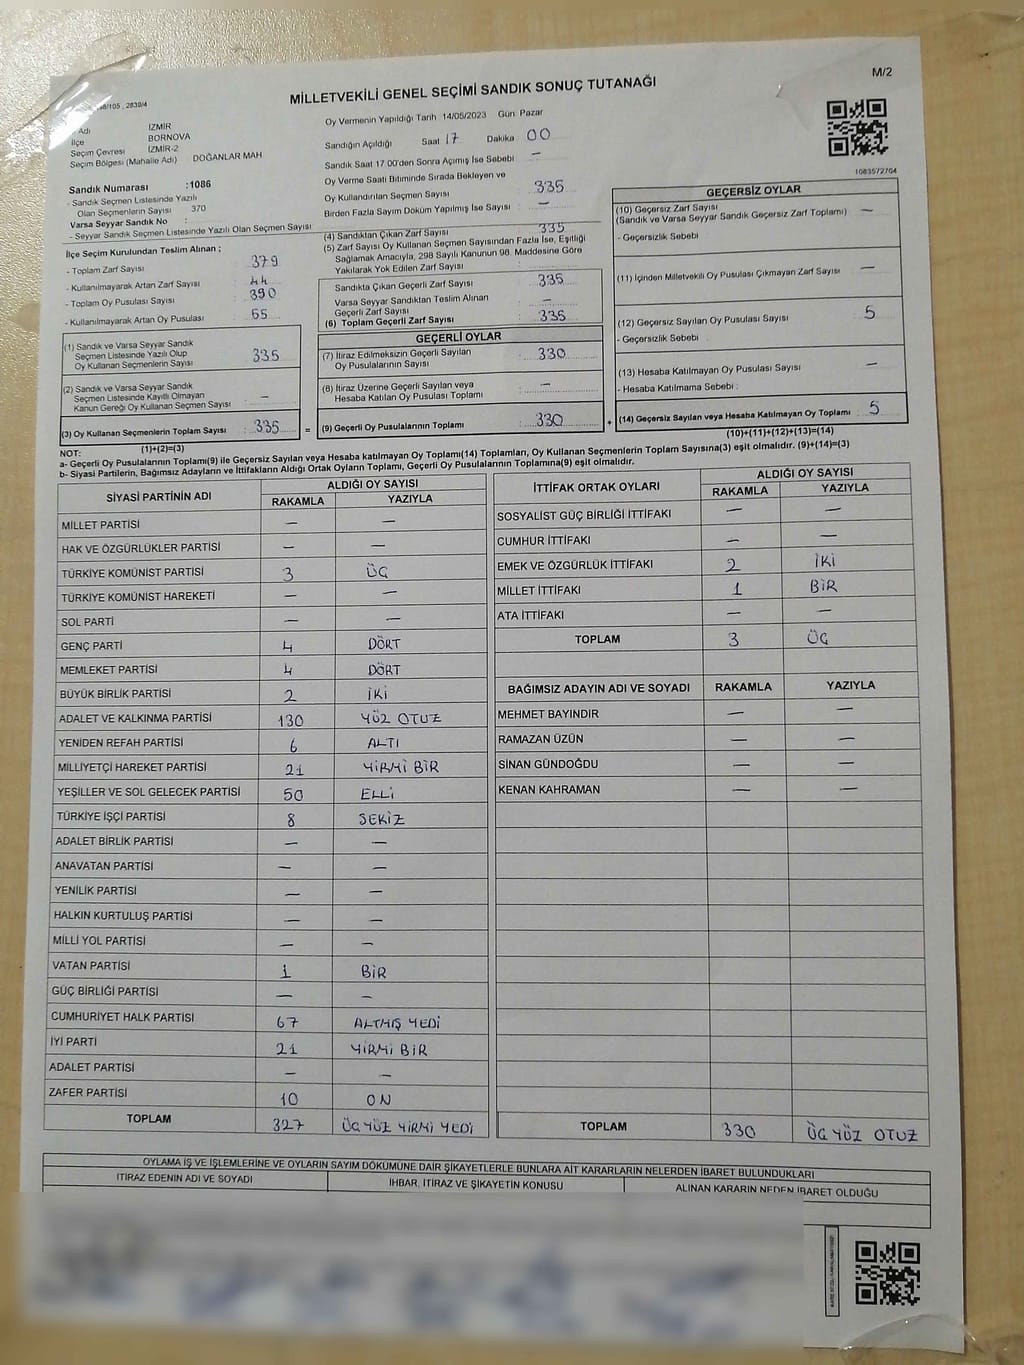 MİLLETVEKİLİ GENEL SEÇİMİ SANDIK SONUÇ TUTANAĞI
M/2
Adı İZMİR
İlçe BORNOVA
Seçim Çevresi İZMİR-2
Seçim Bölgesi (Mahalle Adı) DOĞANLAR MAH
Oy Vermenin Yapıldığı Tarih 14/05/2023 Gün: Pazar
Sandığın Açıldığı Saat 17 Dakika 00
Sandık Saat 17:00'den Sonra Açımış İse Sebebi —
Oy Verme Saati Bitiminde Sırada Bekleyen ve
Oy Kullandırılan Seçmen Sayısı 335
Birden Fazla Sayım Döküm Yapılmış İse Sayısı : —
1083572704
Sandık Numarası :1086
- Sandık Seçmen Listesinde Yazılı
Olan Seçmenlerin Sayısı 370
Varsa Seyyar Sandık No :
- Seyyar Sandık Seçmen Listesinde Yazılı Olan Seçmen Sayısı
İlçe Seçim Kurulundan Teslim Alınan ;
- Toplam Zarf Sayısı 379
- Kullanılmayarak Artan Zarf Sayısı : 44
- Toplam Oy Pusulası Sayısı : 390
- Kullanılmayarak Artan Oy Pusulası : 55
(1) Sandık ve Varsa Seyyar Sandık
Seçmen Listesinde Yazılı Olup
Oy Kullanan Seçmenlerin Sayısı 335
(2) Sandık ve Varsa Seyyar Sandık
Seçmen Listesinde Kayıtlı Olmayan
Kanun Gereği Oy Kullanan Seçmen Sayısı : —
(3) Oy Kullanan Seçmenlerin Toplam Sayısı : 335 =
(1)+(2)=(3)
(4) Sandıktan Çıkan Zarf Sayısı : 335
(5) Zarf Sayısı Oy Kullanan Seçmen Sayısından Fazla İse, Eşitliği
Sağlamak Amacıyla, 298 Sayılı Kanunun 98. Maddesine Göre
Yakılarak Yok Edilen Zarf Sayısı :
Sandıkta Çıkan Geçerli Zarf Sayısı : 335
Varsa Seyyar Sandıktan Teslim Alınan
Geçerli Zarf Sayısı : —
(6) Toplam Geçerli Zarf Sayısı : 335
GEÇERLİ OYLAR
(7) İtiraz Edilmeksizin Geçerli Sayılan
Oy Pusulalarının Sayısı : 330
(8) İtiraz Üzerine Geçerli Sayılan veya
Hesaba Katılan Oy Pusulası Toplamı : —
(9) Geçerli Oy Pusulalarının Toplamı : 330 +
GEÇERSİZ OYLAR
(10) Geçersiz Zarf Sayısı
(Sandık ve Varsa Seyyar Sandık Geçersiz Zarf Toplamı) —
- Geçersizlik Sebebi
(11) İçinden Milletvekili Oy Pusulası Çıkmayan Zarf Sayısı : —
(12) Geçersiz Sayılan Oy Pusulası Sayısı : 5
- Geçersizlik Sebebi :
(13) Hesaba Katılmayan Oy Pusulası Sayısı : —
- Hesaba Katılmama Sebebi :
(14) Geçersiz Sayılan veya Hesaba Katılmayan Oy Toplamı : 5
(10)+(11)+(12)+(13)=(14)
NOT:
a- Geçerli Oy Pusulalarının Toplamı(9) ile Geçersiz Sayılan veya Hesaba katılmayan Oy Toplamı(14) Toplamları, Oy Kullanan Seçmenlerin Toplam Sayısına(3) eşit olmalıdır. (9)+(14)=(3)
b- Siyasi Partilerin, Bağımsız Adayların ve İttifakların Aldığı Ortak Oyların Toplamı, Geçerli Oy Pusulalarının Toplamına(9) eşit olmalıdır.
SİYASİ PARTİNİN ADI ALDIĞI OY SAYISI
RAKAMLA YAZIYLA
MİLLET PARTİSİ — —
HAK VE ÖZGÜRLÜKLER PARTİSİ — —
TÜRKİYE KOMÜNİST PARTİSİ 3 ÜÇ
TÜRKİYE KOMÜNİST HAREKETİ — —
SOL PARTİ — —
GENÇ PARTİ 4 DÖRT
MEMLEKET PARTİSİ 4 DÖRT
BÜYÜK BİRLİK PARTİSİ 2 İKİ
ADALET VE KALKINMA PARTİSİ 130 YÜZ OTUZ
YENİDEN REFAH PARTİSİ 6 ALTI
MİLLİYETÇİ HAREKET PARTİSİ 21 YİRMİ BİR
YEŞİLLER VE SOL GELECEK PARTİSİ 50 ELLİ
TÜRKİYE İŞÇİ PARTİSİ 8 SEKİZ
ADALET BİRLİK PARTİSİ — —
ANAVATAN PARTİSİ — —
YENİLİK PARTİSİ — —
HALKIN KURTULUŞ PARTİSİ — —
MİLLİ YOL PARTİSİ — —
VATAN PARTİSİ 1 BİR
GÜÇ BİRLİĞİ PARTİSİ — —
CUMHURİYET HALK PARTİSİ 67 ALTMIŞ YEDİ
İYİ PARTİ 21 YİRMİ BİR
ADALET PARTİSİ — —
ZAFER PARTİSİ 10 ON
TOPLAM 327 ÜÇ YÜZ YİRMİ YEDİ
İTTİFAK ORTAK OYLARI ALDIĞI OY SAYISI
RAKAMLA YAZIYLA
SOSYALİST GÜÇ BİRLİĞİ İTTİFAKI — —
CUMHUR İTTİFAKI — —
EMEK VE ÖZGÜRLÜK İTTİFAKI 2 İKİ
MİLLET İTTİFAKI 1 BİR
ATA İTTİFAKI — —
TOPLAM 3 ÜÇ
BAĞIMSIZ ADAYIN ADI VE SOYADI RAKAMLA YAZIYLA
MEHMET BAYINDIR — —
RAMAZAN ÜZÜN — —
SİNAN GÜNDOĞDU — —
KENAN KAHRAMAN — —
TOPLAM 330 ÜÇ YÜZ OTUZ
OYLAMA İŞ VE İŞLEMLERİNE VE OYLARIN SAYIM DÖKÜMÜNE DAİR ŞİKAYETLERLE BUNLARA AİT KARARLARIN NELERDEN İBARET BULUNDUKLARI
İTİRAZ EDENİN ADI VE SOYADI İHBAR, İTİRAZ VE ŞİKAYETİN KONUSU ALINAN KARARIN NEDEN İBARET OLDUĞU